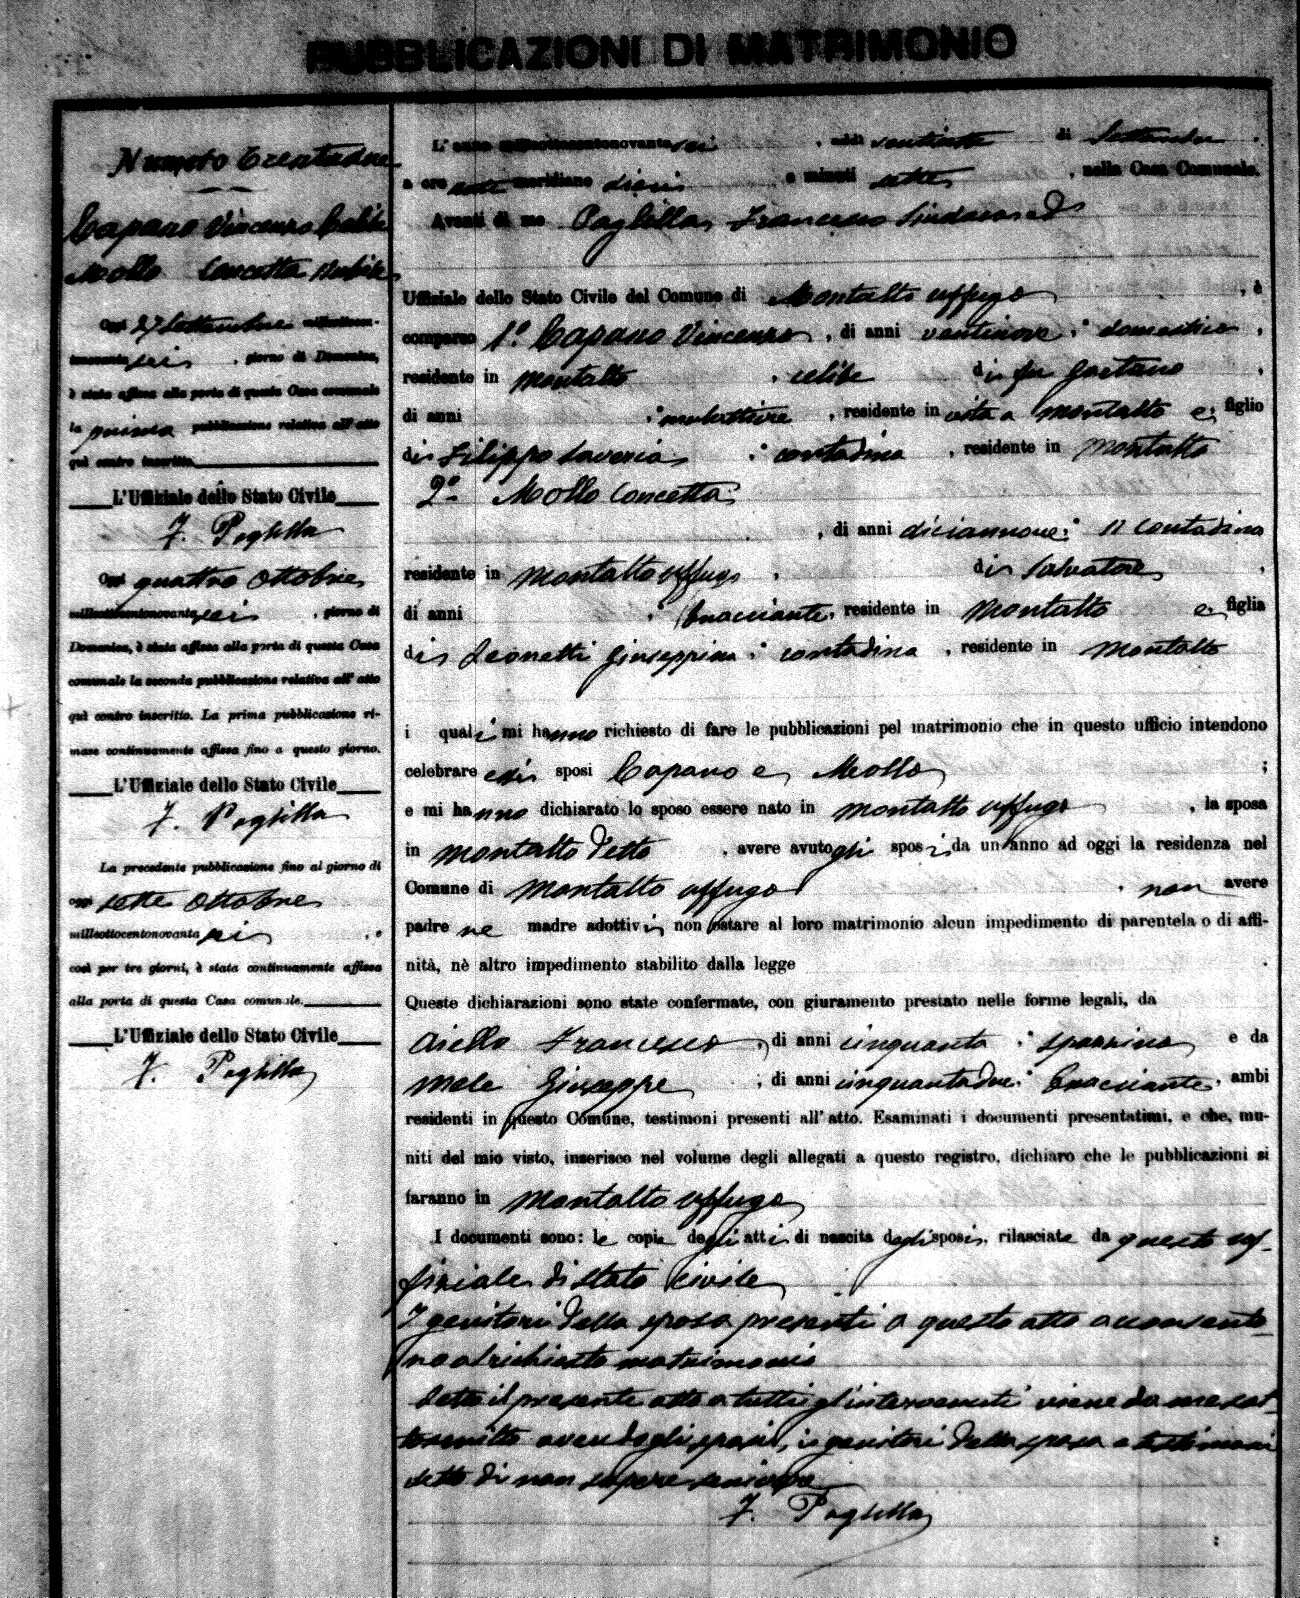 PUBBLICAZIONI DI MATRIMONIO
Numero trentadue
Capano Vincenzo Celibe
Mollo Concetta Nubile
Oggi 27 Settembre millottocen-
tonovanta sei, giorno di Domenica,
è stata affissa alla porta di questa Casa comunale
la prima pubblicazione relativa all'atto
quì contro inscritto.
L'Uffiziale dello Stato Civile
F. Paglilla
Oggi quattro Ottobre
millottocentonovanta sei, giorno di
Domenica, è stata affissa alla porta di questa Casa
comunale la seconda pubblicazione relativa all'atto
quì contro inscritto. La prima pubblicazione ri-
mase continuamente affissa fino a questo giorno.
L'Uffiziale dello Stato Civile
F. Paglilla
La precedente pubblicazione fino al giorno di
oggi sette Ottobre
milleottocentonovanta sei, e
così per tre giorni, è stata continuamente affissa
alla porta di questa Casa comunale.
L'Uffiziale dello Stato Civile
F. Paglilla
L'anno millottocentonovanta sei, addì ventisette di Settembre,
a ore ante meridiane dieci e minuti sette, nella Casa Comunale.
Avanti di me Paglilla Francesco Sindaco ed
Uffiziale dello Stato Civile del Comune di Montalto Uffugo, è
comparso 1.º Capano Vincenzo, di anni ventinove; domestico,
residente in Montalto, celibe di fu Gaetano,
di anni ; mulattiere, residente in vita a Montalto e, figlio
di Filippo Saveria; contadina, residente in Montalto
2º Mollo Concetta;
, di anni diciannove; contadina
residente in Montalto Uffugo, di Salvatore,
di anni ; bracciante, residente in Montalto e, figlia
di Leonetti Giuseppina; contadina, residente in Montalto
i quali mi hanno richiesto di fare le pubblicazioni pel matrimonio che in questo ufficio intendono
celebrare essi sposi Capano e Mollo;
e mi hanno dichiarato lo sposo essere nato in Montalto Uffugo, la sposa
in Montalto detto, avere avuto gli sposi da un anno ad oggi la residenza nel
Comune di Montalto Uffugo, non avere
padre ne madre adottivi, non ostare al loro matrimonio alcun impedimento di parentela o di affi-
nità, nè altro impedimento stabilito dalla legge.
Queste dichiarazioni sono state confermate, con giuramento prestato nelle forme legali, da
Aiello Francesco, di anni cinquanta; spazzino e da
Mele Giuseppe, di anni cinquantadue; bracciante, ambi
residenti in questo Comune, testimoni presenti all'atto. Esaminati i documenti presentatimi, e che, mu-
niti del mio visto, inserisco nel volume degli allegati a questo registro, dichiaro che le pubblicazioni si
faranno in Montalto Uffugo
I documenti sono: le copie degli atti di nascita degli sposi, rilasciate da questo uf-
fiziale di stato civile
I genitori della sposa presenti a questo atto acconsento-
no al richiesto matrimonio
Letto il presente atto a tutti gl'intervenuti viene da me sot-
toscritto avendo gli sposi, i genitori della sposa e testimoni
detto di non sapere scrivere
F. Paglilla